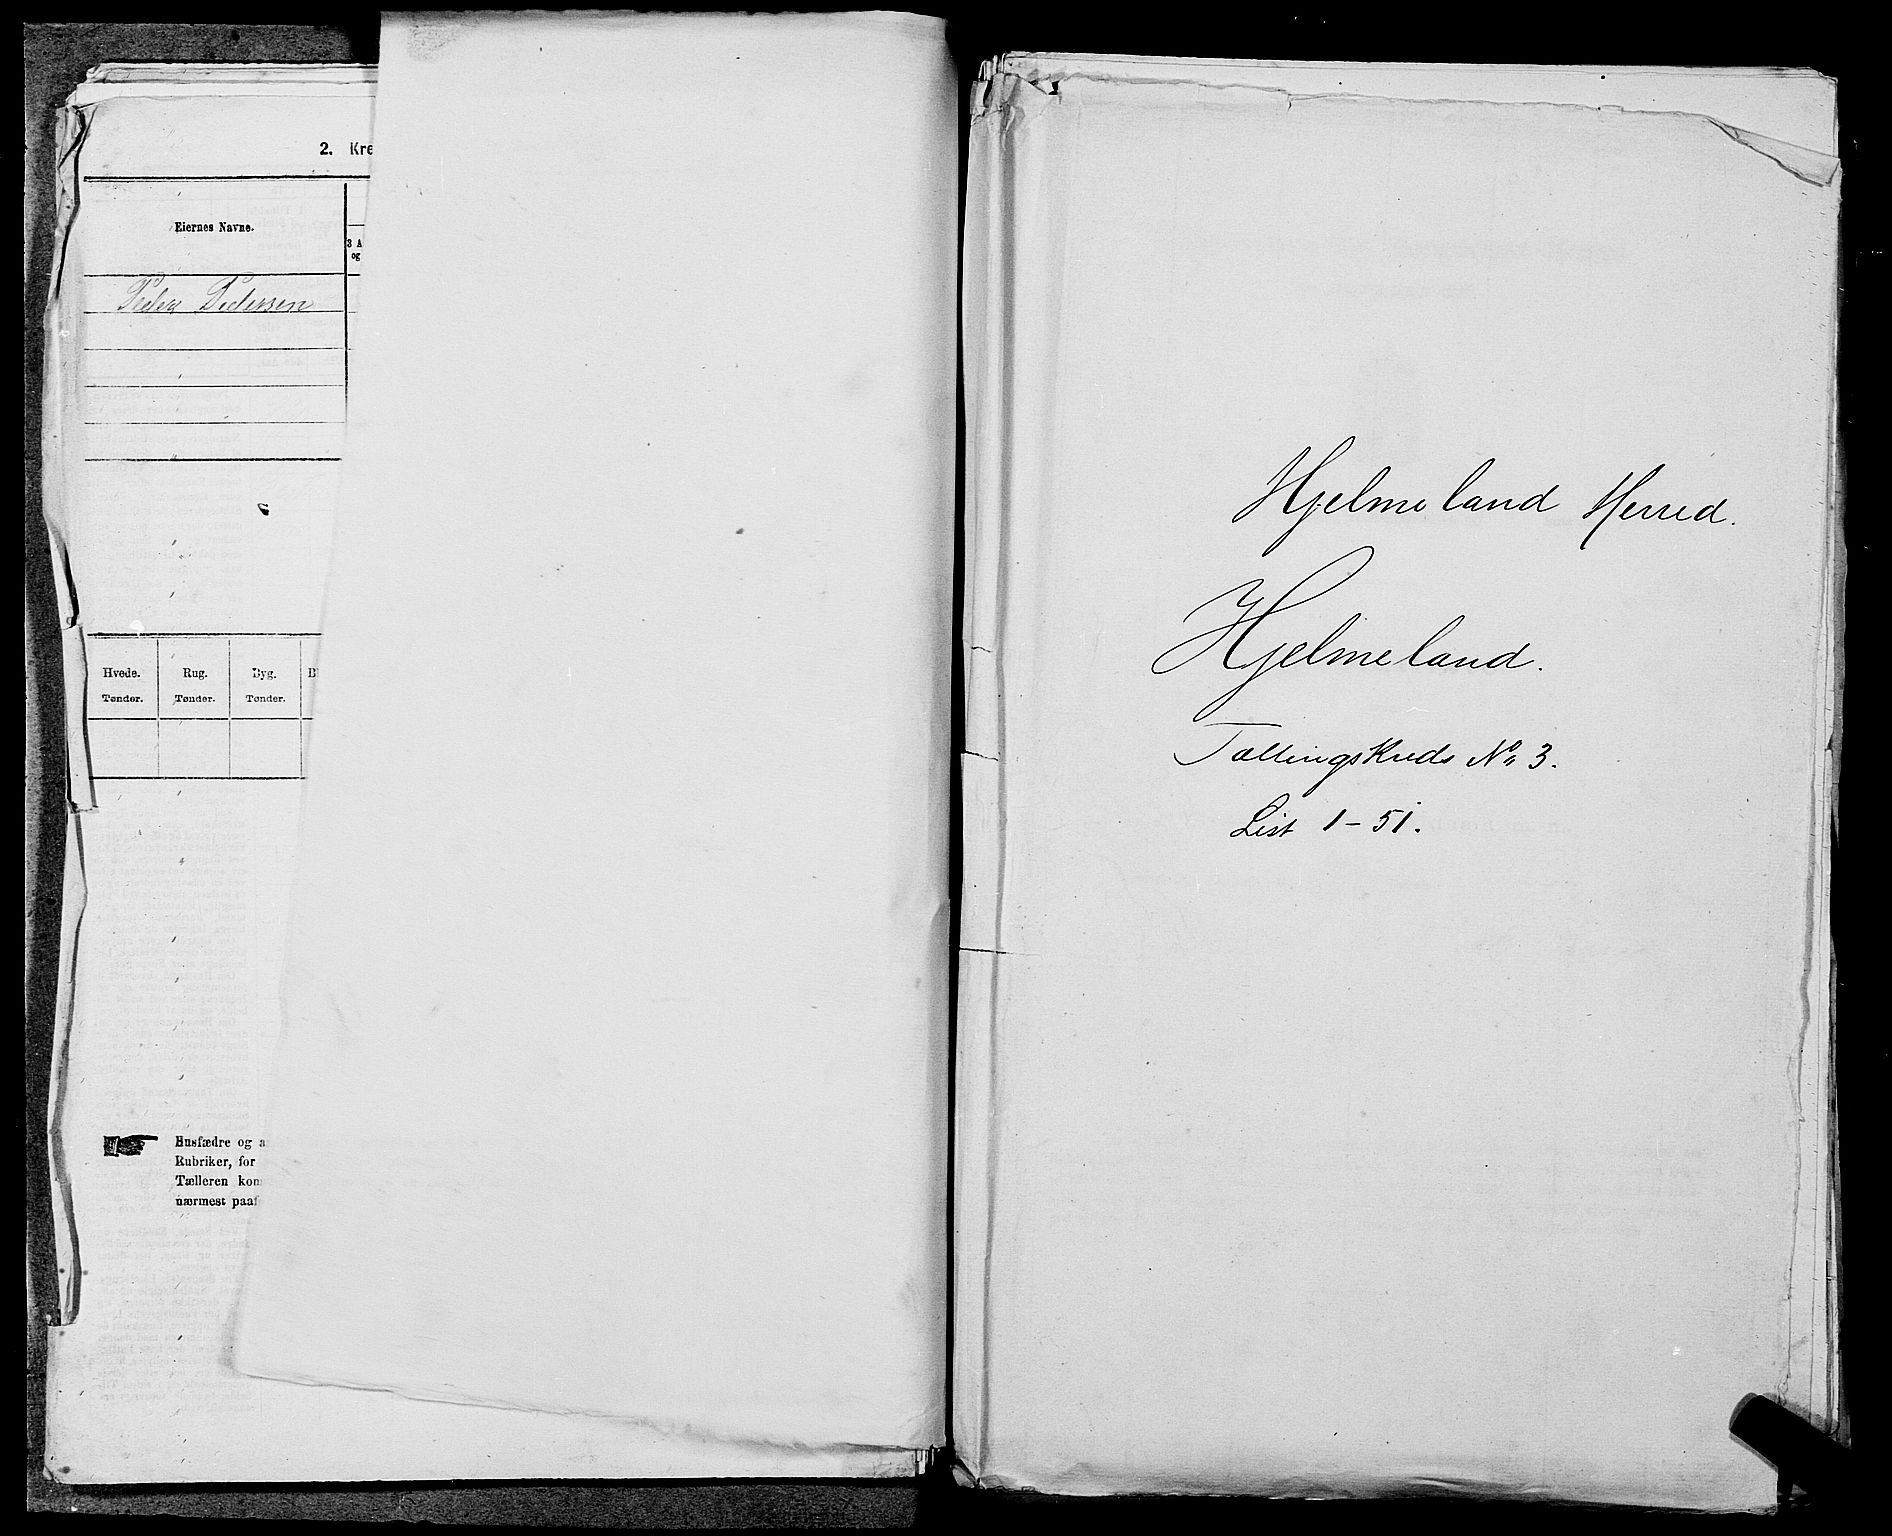 2. Kre
Eiernes Navne.
3 A
og
Peder Pedersen
Hvede. Rug. Byg. B
Tønder. Tønder. Tønder.
Husfædre og a
Rubriker, for
Tælleren kom
nærmest paaf
Hjelmeland Herred.
Hjelmeland.
Tællingskreds No 3.
List 1-51.